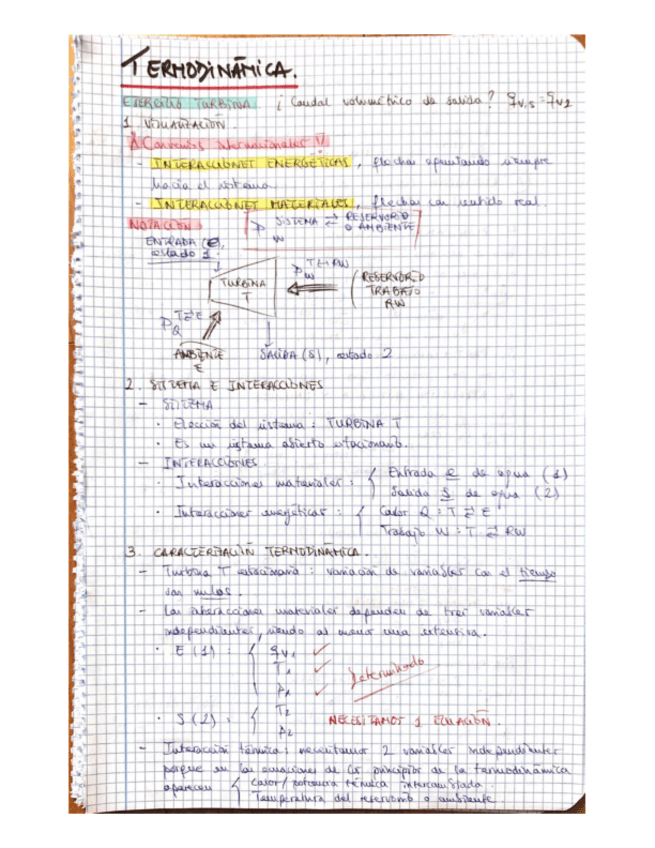 TERMODINÁMICA.
EJERCICIO TURBINA ¿Caudal volumétrico de salida? qv,s = qv2
1. VISUALIZACIÓN.
Convenios internacionales !!
- INTERACCIONES ENERGÉTICAS, flechas apuntando siempre
hacia el sistema.
- INTERACCIONES MATERIALES, flechas con sentido real.
NOTACIÓN:
P SISTEMA ⇄ RESERVORIO
O AMBIENTE
W
ENTRADA (e),
estado 1.
TURBINA
T
P T⇄RW
W
RESERVORIO
TRABAJO
RW
P T⇄E
Q
AMBIENTE
E
SALIDA (S), estado 2
2. SISTEMA E INTERACCIONES
- SISTEMA
· Elección del sistema: TURBINA T
· Es un sistema abierto estacionario.
- INTERACCIONES
· Interacciones materiales: { Entrada e de agua (1)
Salida s de agua (2)
· Interacciones energéticas: { Calor Q: T ⇄ E
Trabajo W: T ⇄ RW
3. CARACTERIZACIÓN TERMODINÁMICA.
- Turbina T estacionaria: variación de variables con el tiempo
son nulas.
- Las interacciones materiales dependen de tres variables
independientes, siendo al menos una extensiva.
· E (1): { qv1 ✓
T1 ✓
P1 ✓
Determinado
· S (2): { T2
P2
NECESITAMOS 1 ECUACIÓN.
- Interacción térmica: necesitamos 2 variables independientes
porque en las ecuaciones de los principios de la termodinámica
aparecen { Calor/potencia térmica intercambiada.
Temperatura del reservorio o ambiente